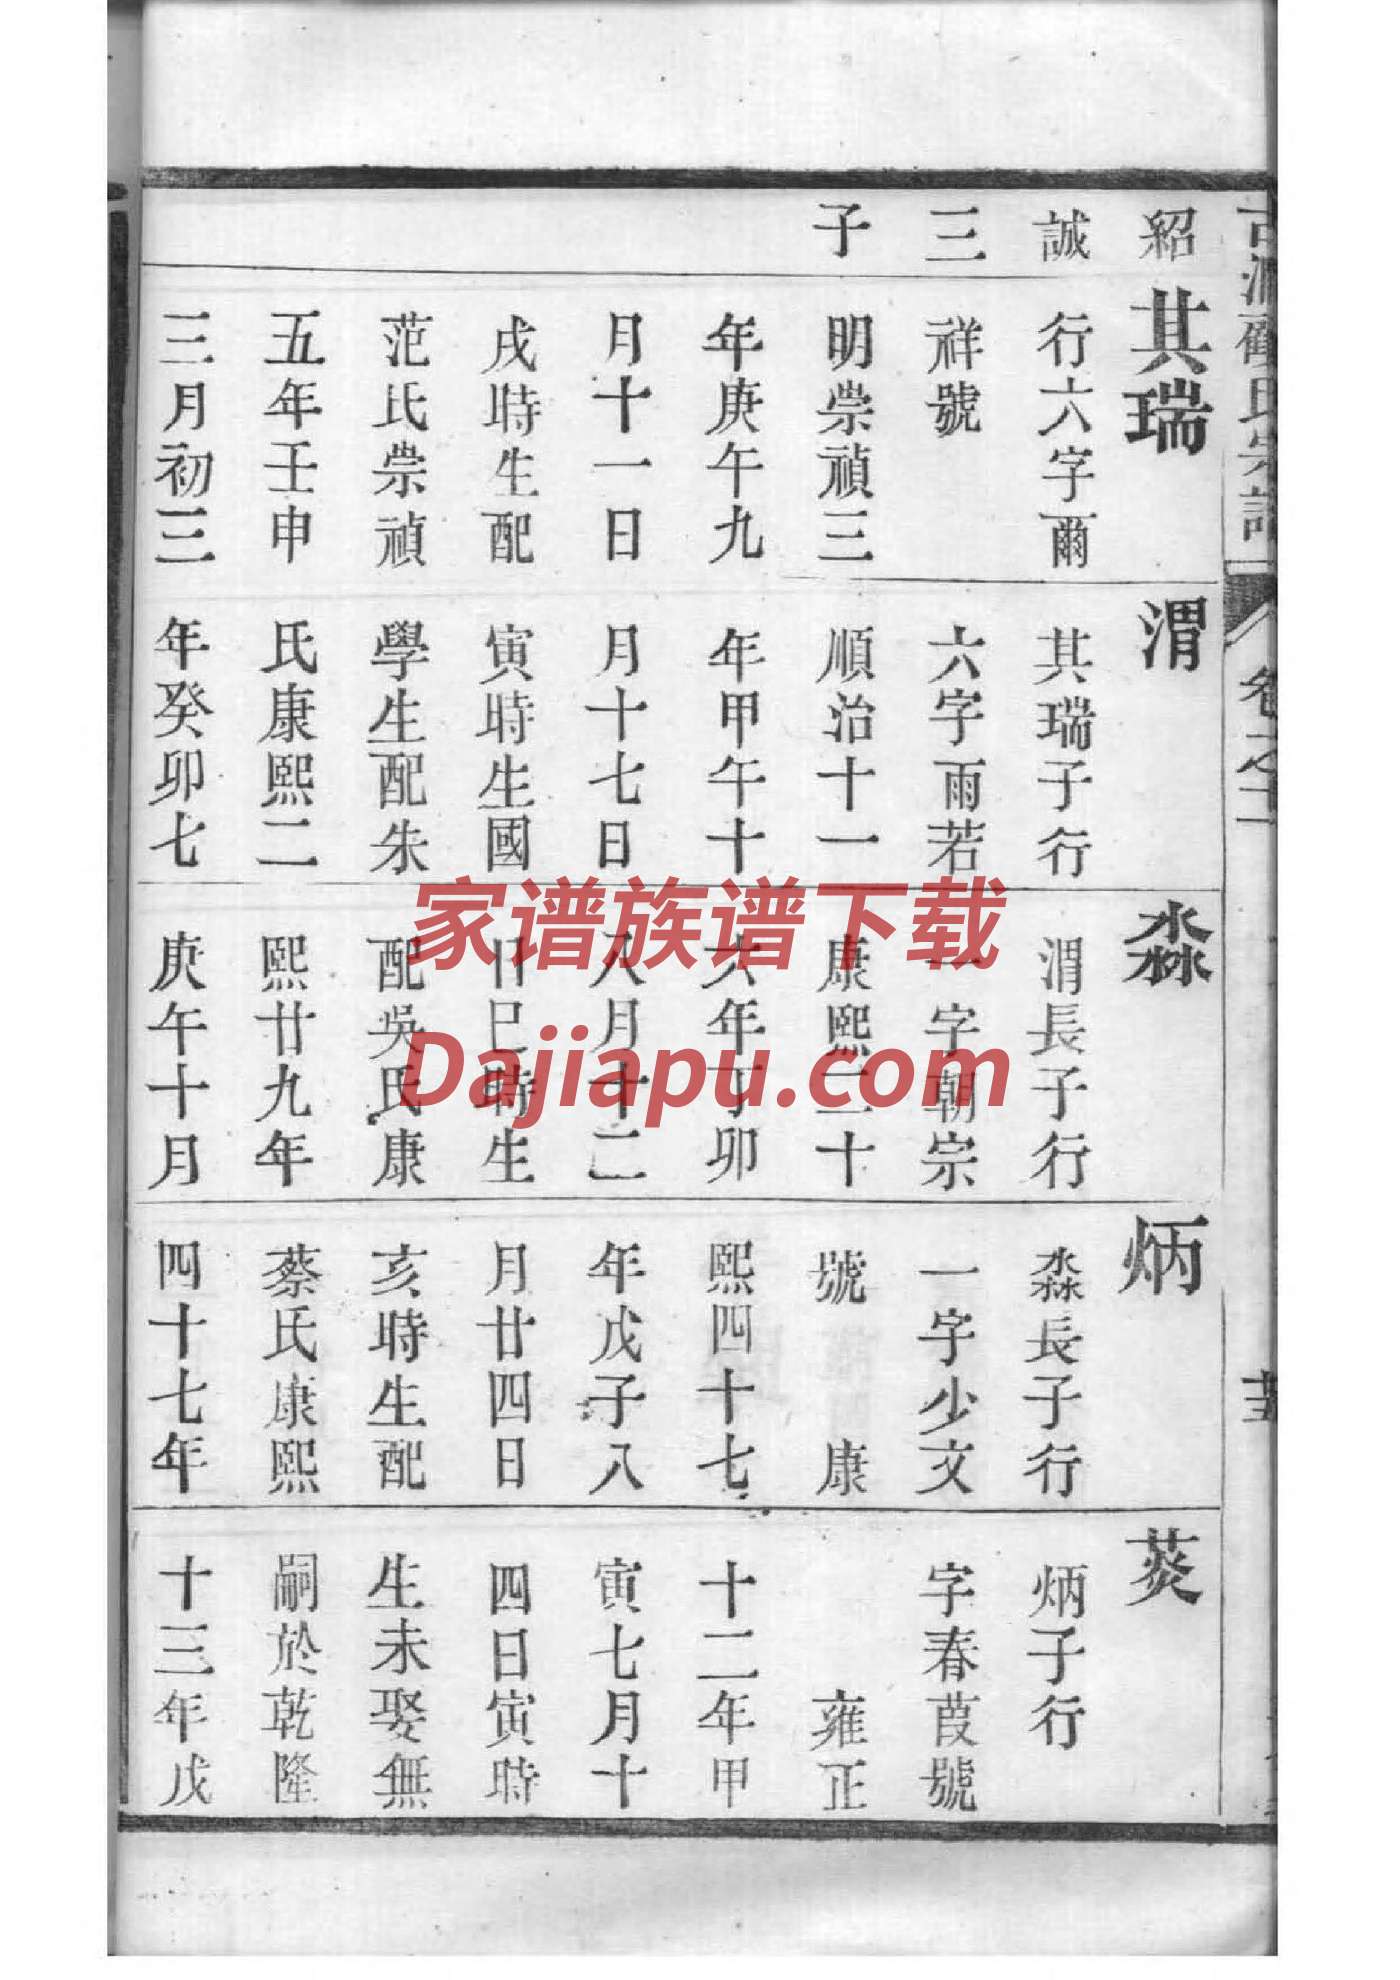 氏宗譜
卷之二
紹
誠
三
子
其瑞
行六字爾
祥號
明崇禎三
年庚午九
月十一日
戌時生配
范氏崇禎
五年壬申
三月初三
渭
其瑞子行
六字雨若
順治十一
年甲午十
月十七日
寅時生國
學生配朱
氏康熙二
年癸卯七
淼
渭長子行
一字朝宗
康熙二十
六年丁卯
八月十二
日巳時生
配吳氏康
熙廿九年
庚午十月
炳
淼長子行
一字少文
號 康
熙四十七
年戊子八
月廿四日
亥時生配
蔡氏康熙
四十七年
葵
炳子行
字春葭號
雍正
十二年甲
寅七月十
四日寅時
生未娶無
嗣於乾隆
十三年戊
家谱族谱下载
Dajiapu.com